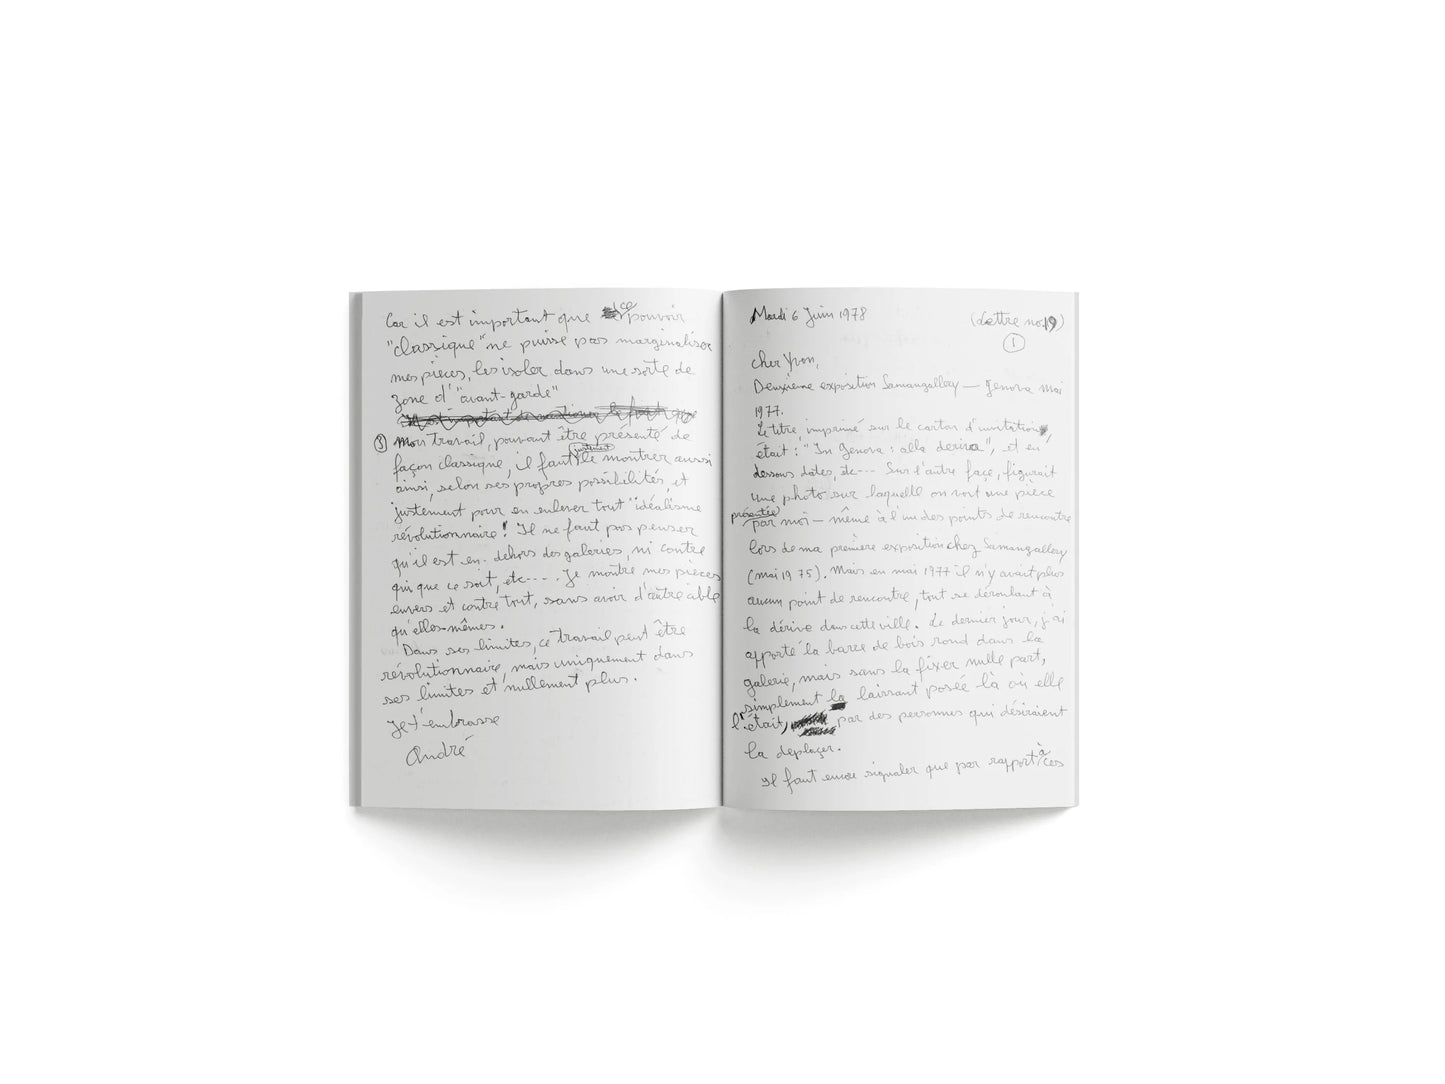 Car il est important que ce pouvoir
"classique" ne puisse pas marginaliser
mes pièces, les isoler dans une sorte de
zone d'"avant-garde"
Il est important de mentionner le fait que
③ Mon travail, pouvant être présenté de
façon classique, il faut justement le montrer aussi
ainsi, selon ses propres possibilités, et
justement pour en enlever tout "idéalisme
révolutionnaire! Il ne faut pas penser
qu'il est en-dehors des galeries, ni contre
qui que ce soit, etc---. Je montre mes pièces
envers et contre tout, sans avoir d'autre cible
qu'elles-mêmes.
Dans ses limites, ce travail peut être
révolutionnaire, mais uniquement dans
ses limites et nullement plus.
Je t'embrasse
André
Mardi 6 Juin 1978 (Lettre no 19)
①
Cher Yvon,
Deuxième exposition Samangallery — Genova mai
1977.
Le titre, imprimé sur le carton d'invitation,
était : "In Genova : alla deriva", et en
dessous dates, etc--- Sur l'autre face, figurait
une photo sur laquelle on voit une pièce
présentée par moi — même à l'un des points de rencontre
lors de ma première exposition chez Samangallery
(mai 1975). Mais en mai 1977 il n'y avait plus
aucun point de rencontre, tout se déroulant à
la dérive dans cette ville. Le dernier jour, j'ai
apporté la barre de bois rond dans la
galerie, mais sans la fixer nulle part,
simplement la laissant posée là où elle
l'était, par des personnes qui désiraient
la déplacer.
Il faut encore signaler que par rapport à ces